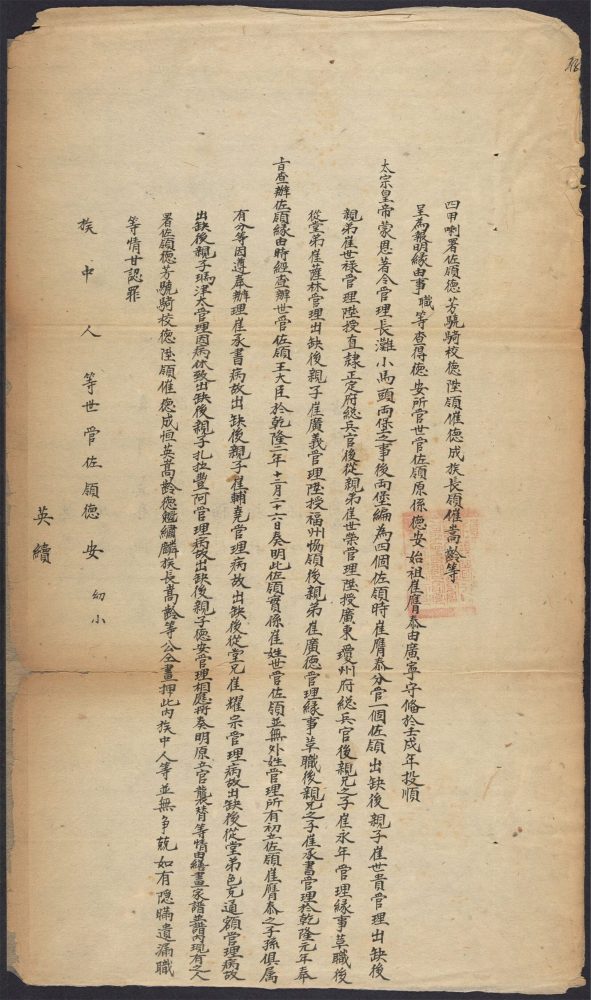 四甲喇署佐領德芳驍騎校德陞領催德成族長領催萬齡等
呈為報明緣由事職等查得德安所管世管佐領原係德安始祖崔膺泰由廣寧守備於壬戌年投順
太宗皇帝蒙恩著令管理長灘小馬頭両堡之事後両堡編為四個佐領時崔膺泰分管一個佐領出缺後親子崔世貴管理出缺後
親弟崔世祿管理陞授直隸正定府総兵官後從親弟崔世榮管理陞授廣東瓊州府総兵官後親兄之子崔永年管理緣事草職後
從堂弟崔薩林管理出缺後親子崔廣義管理陞授福州協領後親弟崔廣德管理緣事草職後親兄之子崔承書管理於乾隆元年奉
旨查辦佐領緣由時經查辦世管佐領王大臣於乾隆二年十二月二十六日奏明此佐領實係崔姓世管佐領並無外姓管理所有初立佐領崔膺泰之子孫俱属
有分等因遵奉辦理崔承書病故出缺後親子崔輔堯管理病故出缺後從堂兄崔耀宗管理病故出缺後從堂弟色克通額管理病故
出缺後親子瑪津太管理因病休致出缺後親子扎拉豐阿管理病故出缺後親子德安管理相應將奏明原立官襲替等情由繕畫家譜譜內現有之人
署佐領德芳驍騎校德陞領催德成恒英萬齡德魁繡麟族長萬齡等公仝畫押此內族中人等並無争競如有隱瞞遺漏職
等情甘認罪
族中人等世管佐領德安 幼小
英續